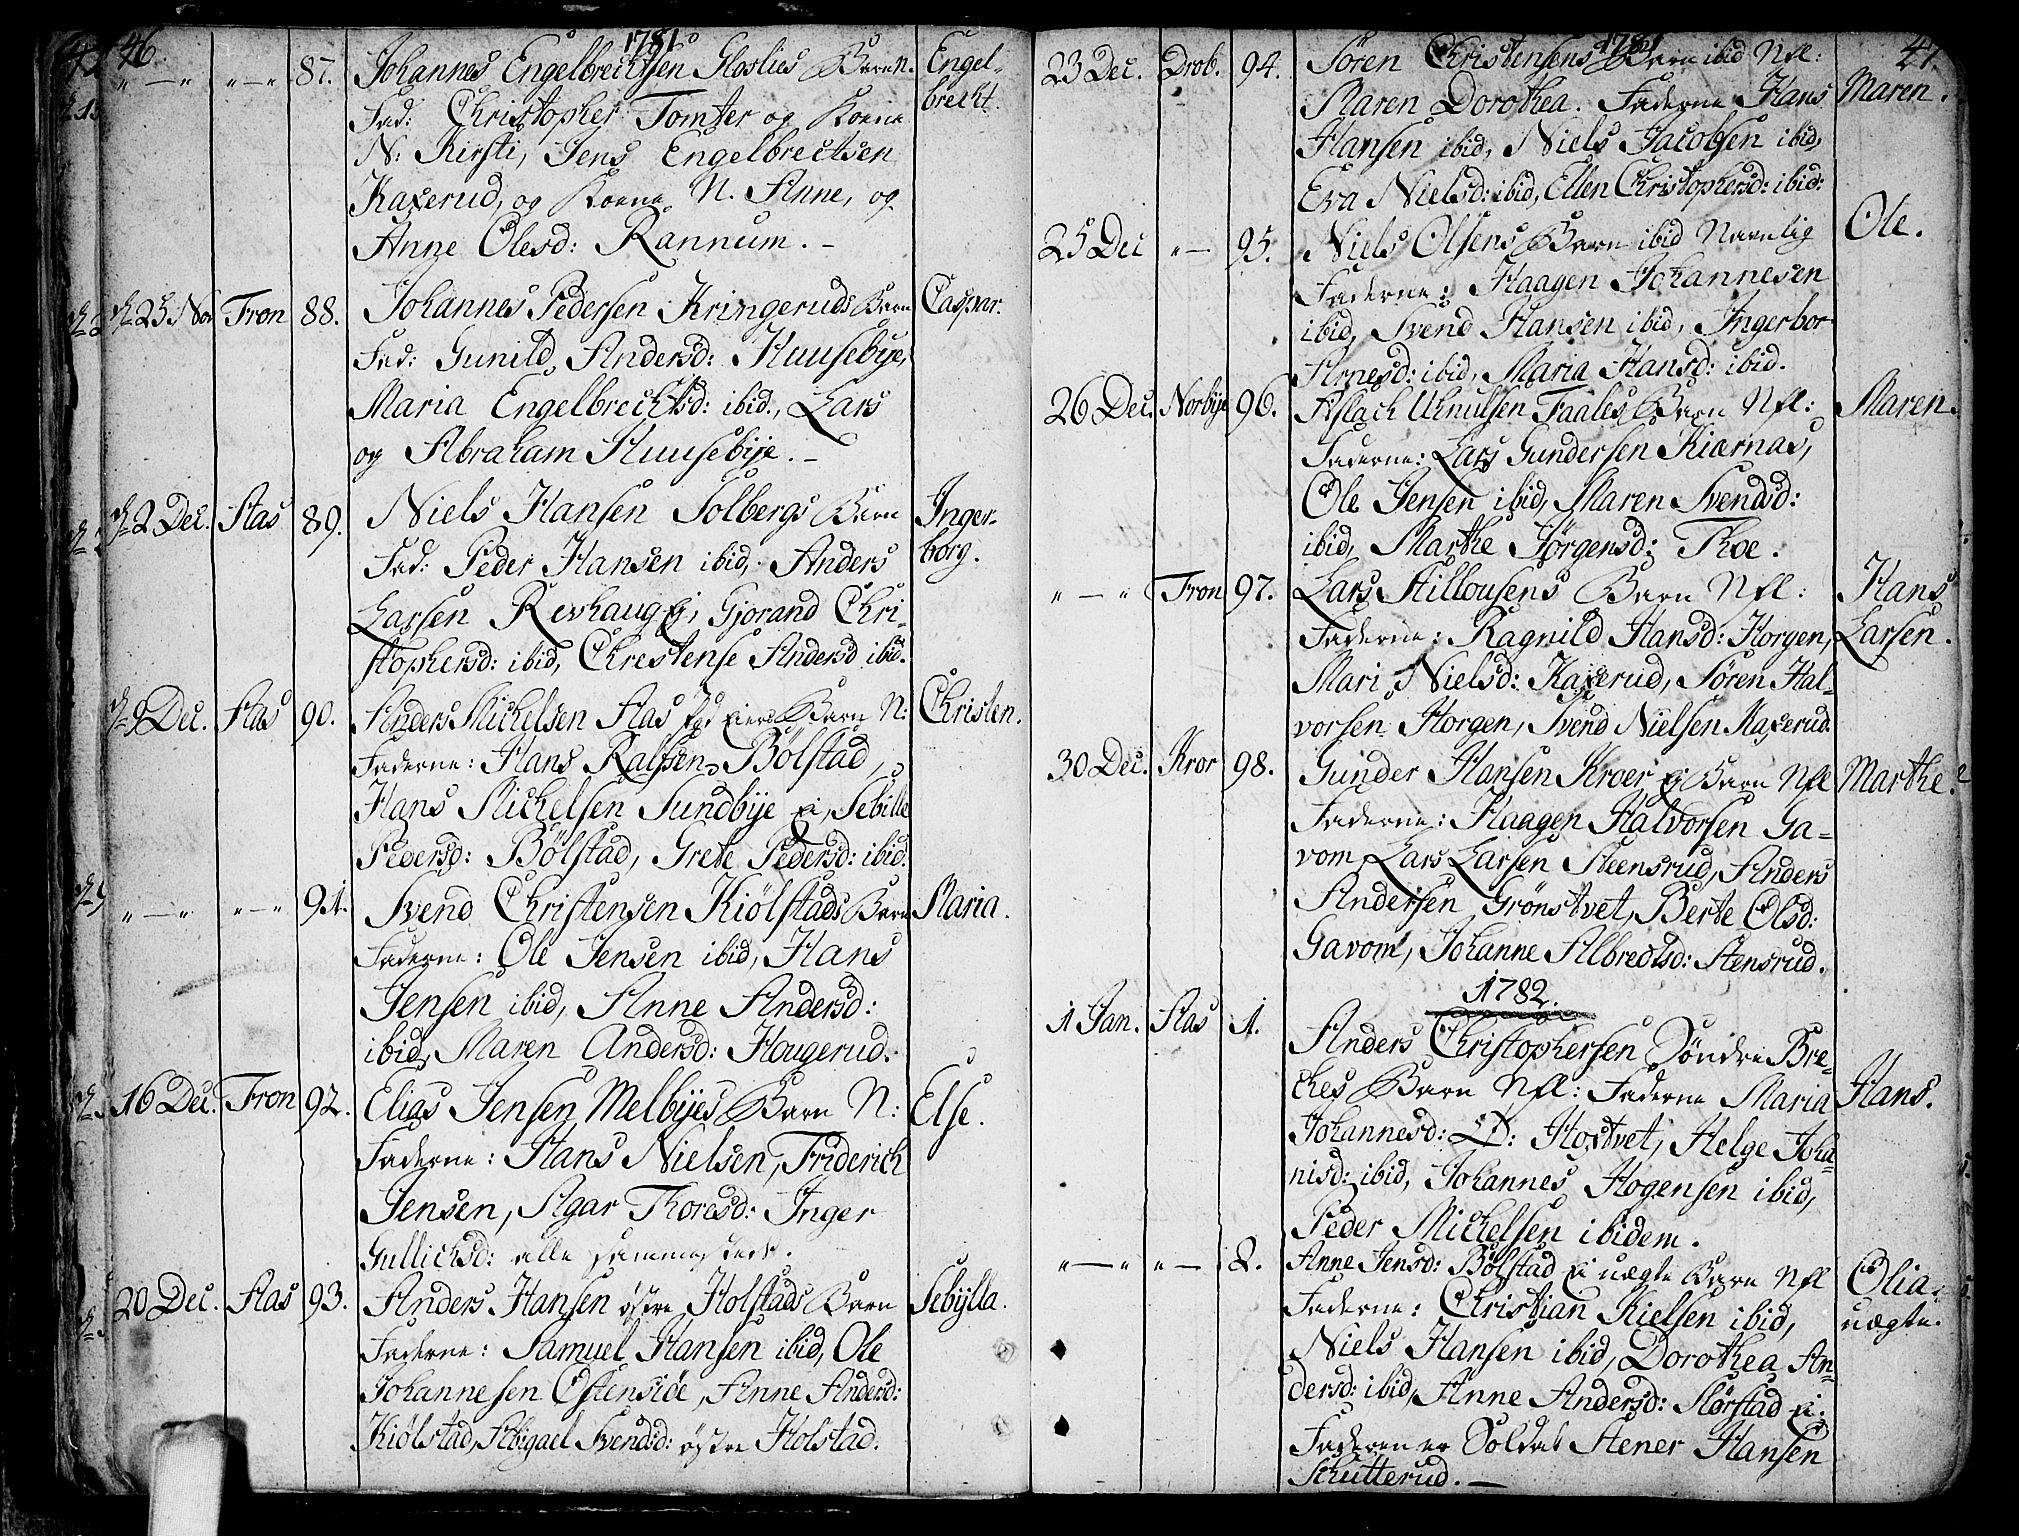 46.
1781
„ — „ „ — „ 87. Johannes Engelbrechtsen Glaslies Barn N. Engel-
Fad: Christopher Tomter og Kone brecht.
N: Kirsti, Jens Engelbrectsen
Kaxerud, og Kone N. Anne, og
Anne Olesd: Rannum. –
25 Nov Tron 88. Johannes Pedersen Kringeruds Barn Caspar.
Fad: Gunild Andersd: Huusebye,
Maria Engelbrechtsd: ibid., Lars
og Abraham Huusebye. –
2 Dec. Aas 89. Niels Hansen Solbergs Barn Inger-
Fad: Peder Hansen ibid, Anders borg.
Larsen Revhaug Ej, Gjorand Chri-
stophersd: ibid, Chrestense Andersd ibid.
9 Dec. Aas 90. Anders Michelsen Aas Barn N: Christen.
Faderne: Hans Ralfsen Bølstad,
Hans Michelsen Sundbye Ei, Sebille
Pedersd: Bølstad, Grete Pedersd: ibid.
„ — „ „ — „ 91. Svend Christensen Kiølstads Barn Maria.
Faderne: Ole Jensen ibid, Hans
Jensen ibid, Anne Andersd:
ibid, Maren Andersd: Hougerud.
16 Dec. Tron 92. Elias Jensen Melbyes Barn N: Else.
Faderne: Hans Nielsen, Friderich
Jensen, Agar Thoresd: Inger
Gullichsd: alle sammesteds.
20 Dec. Aas 93. Anders Hansen østre Holstads Barn Sebylla.
Faderne: Samuel Hansen ibid, Ole
Johannesen Østensiøe, Anne Andersd:
Kiølstad, Abigael Svendsd: østre Holstad.
1781
47.
23 Dec. Drob. 94. Søren Christensens Barn ibid Nfl:
Maren Dorothea. Faderne Hans Maren.
Hansen ibid, Niels Jacobsen ibid,
Eva Nielsd: ibid, Ellen Christophersd: ibid:
25 Dec „ — 95. Niels Olsens Barn ibid Navnlig Ole.
Faderne: Haagen Johannesen
ibid, Svend Hansen ibid, Ingerbor
Arnesd: ibid, Maria Hansd: ibid.
26 Dec. Norbye 96. Aslach Knutsen Taales Barn Nfl: Maren.
Faderne: Lars Gundersen Kiærnas,
Ole Jensen ibid, Maren Svendsd:
ibid, Marthe Jørgensd: Thoe.
„ — „ Tron 97. Lars Hillousens Barn Nfl: Hans
Faderne: Ragnild Hansd: Horgen, Larsen.
Mari Nielsd: Kaxerud, Søren Hal-
vorsen Horgen, Svend Nielsen Kaxerud.
30 Dec. Kror 98. Gunder Hansen Kroer Ej Barn Nfl Marthe.
Faderne: Haagen Halvorsen Ga-
vom, Lars Larsen Steensrud, Anders
Andersen Grønstvet, Berte Olsd:
Gavom, Johanne Albredtsd: Stensrud.
1782.
1 Jan. Aas 1. Anders Christophersen Søndre Bre-
ches Barn Nfl: Faderne Maria Hans.
Johannesd: Hostvet, Helge Joha-
nisd: ibid, Johannes Hogensen ibid,
Peder Michelsen ibidem.
„ — „ „ — 2. Anne Jensd: Bølstad Ei uægte Barn Nfl Olia
Faderne: Christian Kielsen ibid, uægte.
Niels Hansen ibid, Dorothea An-
dersd: ibid, Anne Andersd: Storstad Ei.
Faderen er Soldat Stener Hansen
Schutterud. —